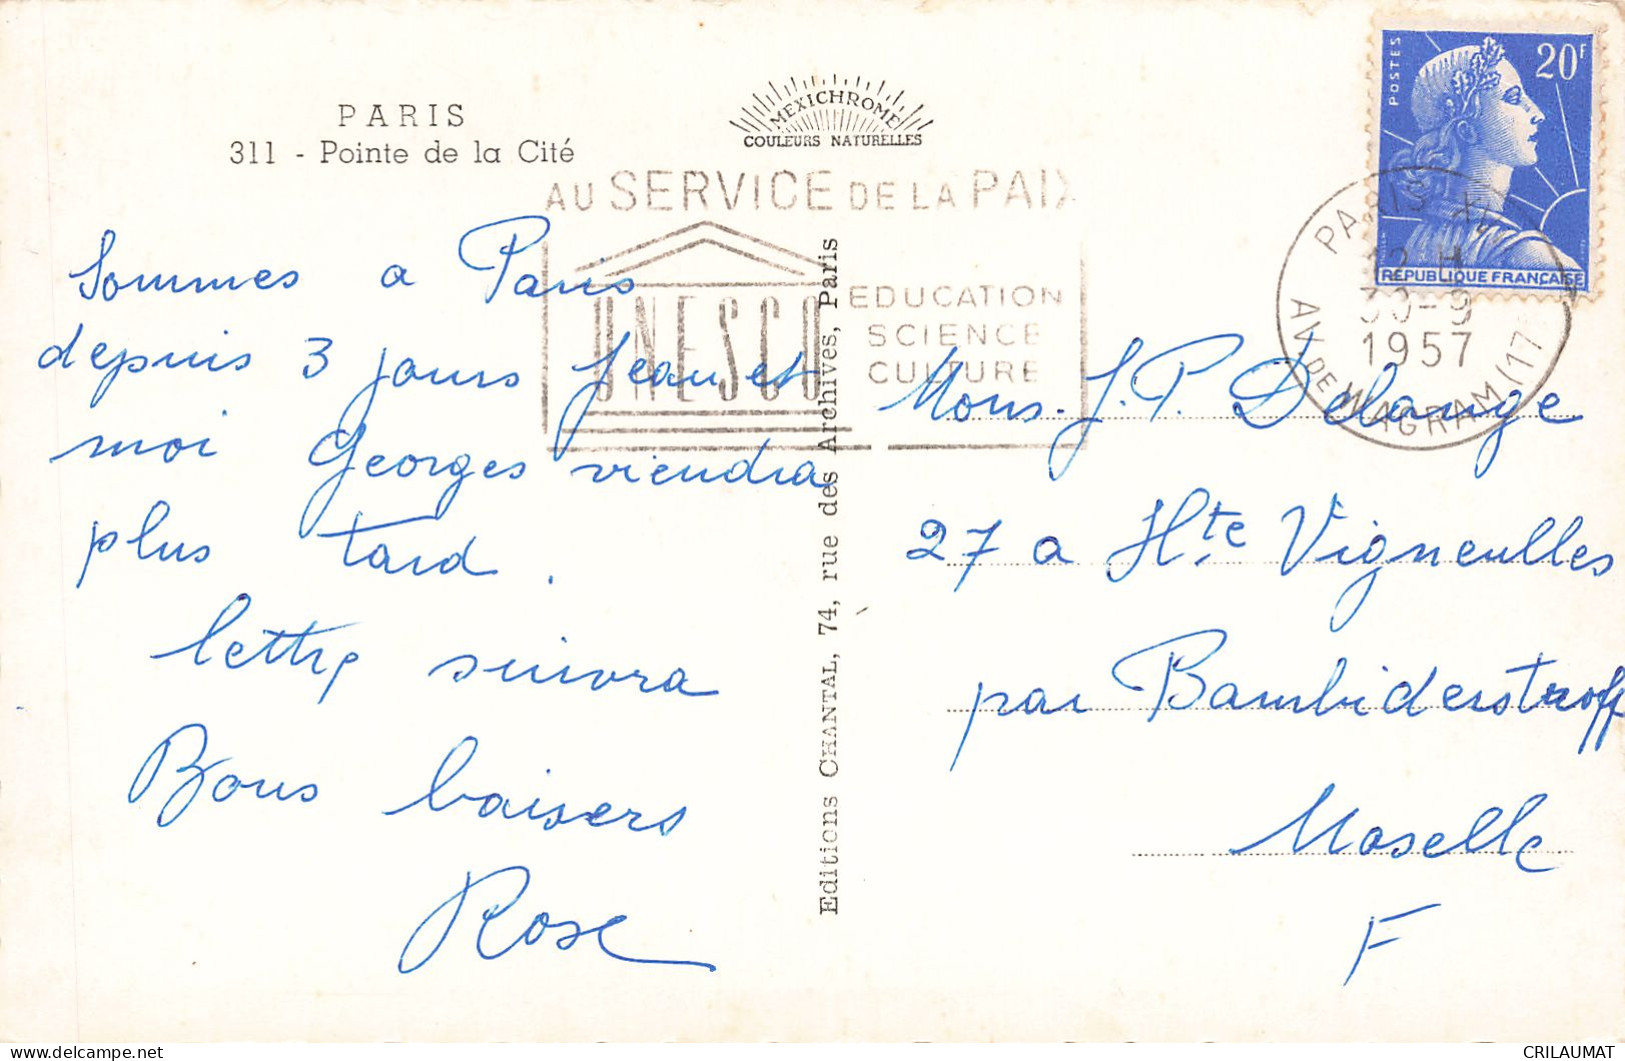 PARIS
311 - Pointe de la Cité
MEXICHROME
COULEURS NATURELLES
AU SERVICE DE LA PAIX
UNESCO
EDUCATION
SCIENCE
CULTURE
POSTES
20F
REPUBLIQUE FRANÇAISE
PARIS
12 H
30-9
1957
AV DE WAGRAM (17
Sommes a Paris
depuis 3 jours Jean et
moi Georges viendra
plus tard.
lettre suivra
Bons baisers
Rose
Editions CHANTAL, 74, rue des Archives, Paris
Mons. J. P. Delange
27 a Hte Vigneulles
par Bambiderstroff
Moselle
F
CRILAUMAT